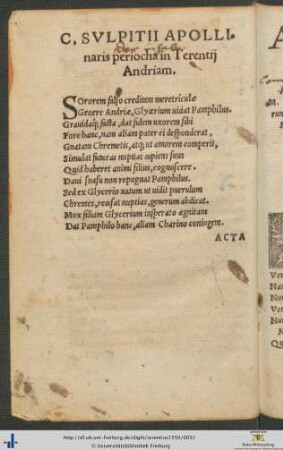 C. SVLPITII APOLLI,
naris periocha in Terentij
Andriam.
SOrorem falso creditam meretriculæ
Genere Andriæ, Glycerium uidat Pamphilus.
Grauidaq; facta, dat fidem uxorem sibi
Fore hanc, nam aliam pater ei desponderat,
Gnatam Chremetis, atq; ut amorem comperit,
Simulat futuras nuptias cupiens suus
Quid haberet animi filius, cognoscere.
Daui suasu non repugnat Pamphilus.
Sed ex Glycerio natum ut uidit puerulum
Chremes, recusat nuptias, generum abdicat.
Mox filiam Glycerium insperato agnitam
Dat Pamphilo hanc, aliam Charino coniugem.
ACTA
http://dl.ub.uni-freiburg.de/diglit/terentius1550/0032
© Universitätsbibliothek Freiburg